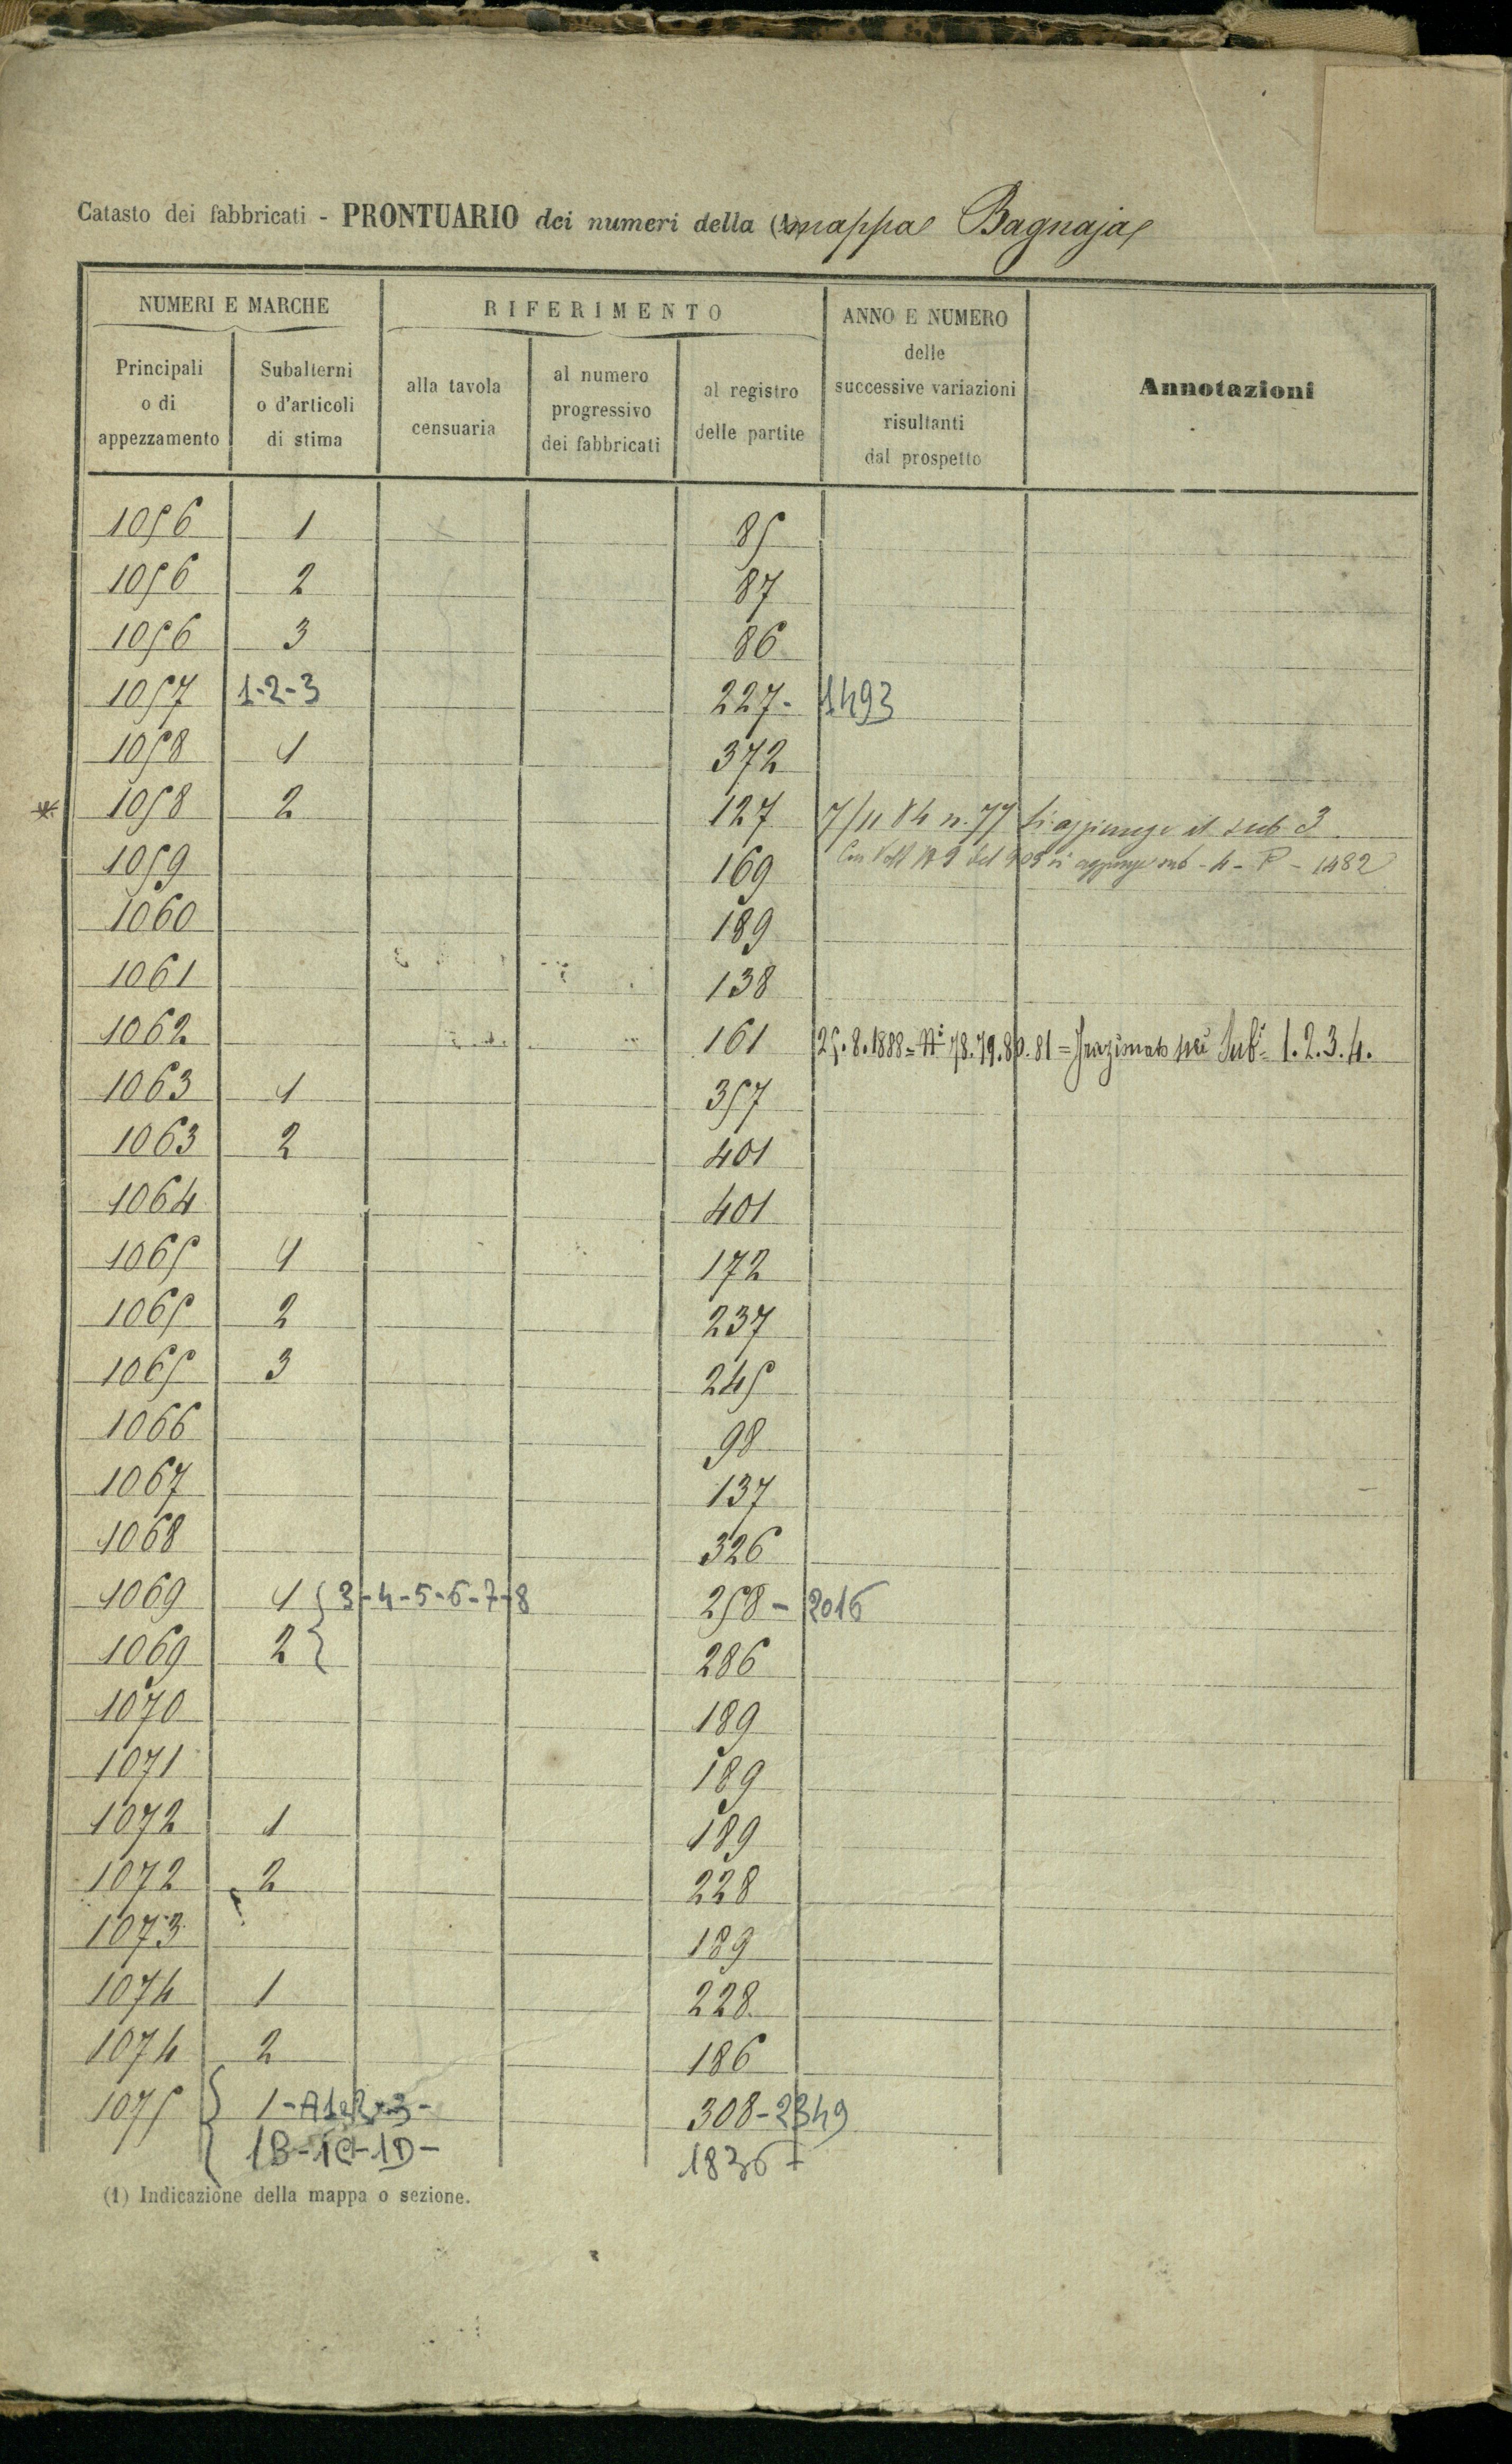 Catasto dei fabbricati - PRONTUARIO dei numeri della (1) mappa Bagnaja
NUMERI E MARCHE RIFERIMENTO ANNO E NUMERO delle successive variazioni risultanti dal prospetto Annotazioni
Principali o di appezzamento Subalterni o d'articoli di stima alla tavola censuaria al numero progressivo dei fabbricati al registro delle partite
1056 1 85
1056 2 87
1056 3 86
1057 1-2-3 227- 1493
1058 1 372
* 1058 2 127 7/11 84 n. 77 Si aggiunge il sub 3
1059 169 si aggiunge sub - 4 - P - 1482
1060 189
1061 138
1062 161 25.8.1888 = Ni 78.79.80.81 = frazionato nei Subi = 1.2.3.4.
1063 1 357
1063 2 401
1064 401
1065 1 172
1065 2 237
1065 3 245
1066 98
1067 137
1068 326
1069 1 { 3-4-5-6-7-8 258 - 2016
1069 2 } 286
1070 189
1071 189
1072 1 189
1072 2 228
1073 189
1074 1 228
1074 2 186
1075 { 1-A1e2-3- 308-2349
1B-1C-1D- 1836
(1) Indicazione della mappa o sezione.